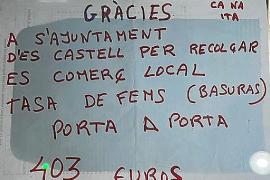 GRÀCIES
CA NA
ITA
A S'AJUNTAMENT
D'ES CASTELL PER RECOLÇAR
ES COMERÇ LOCAL
TASA DE FEMS (BASURAS)
PORTA A PORTA
403 EUROS